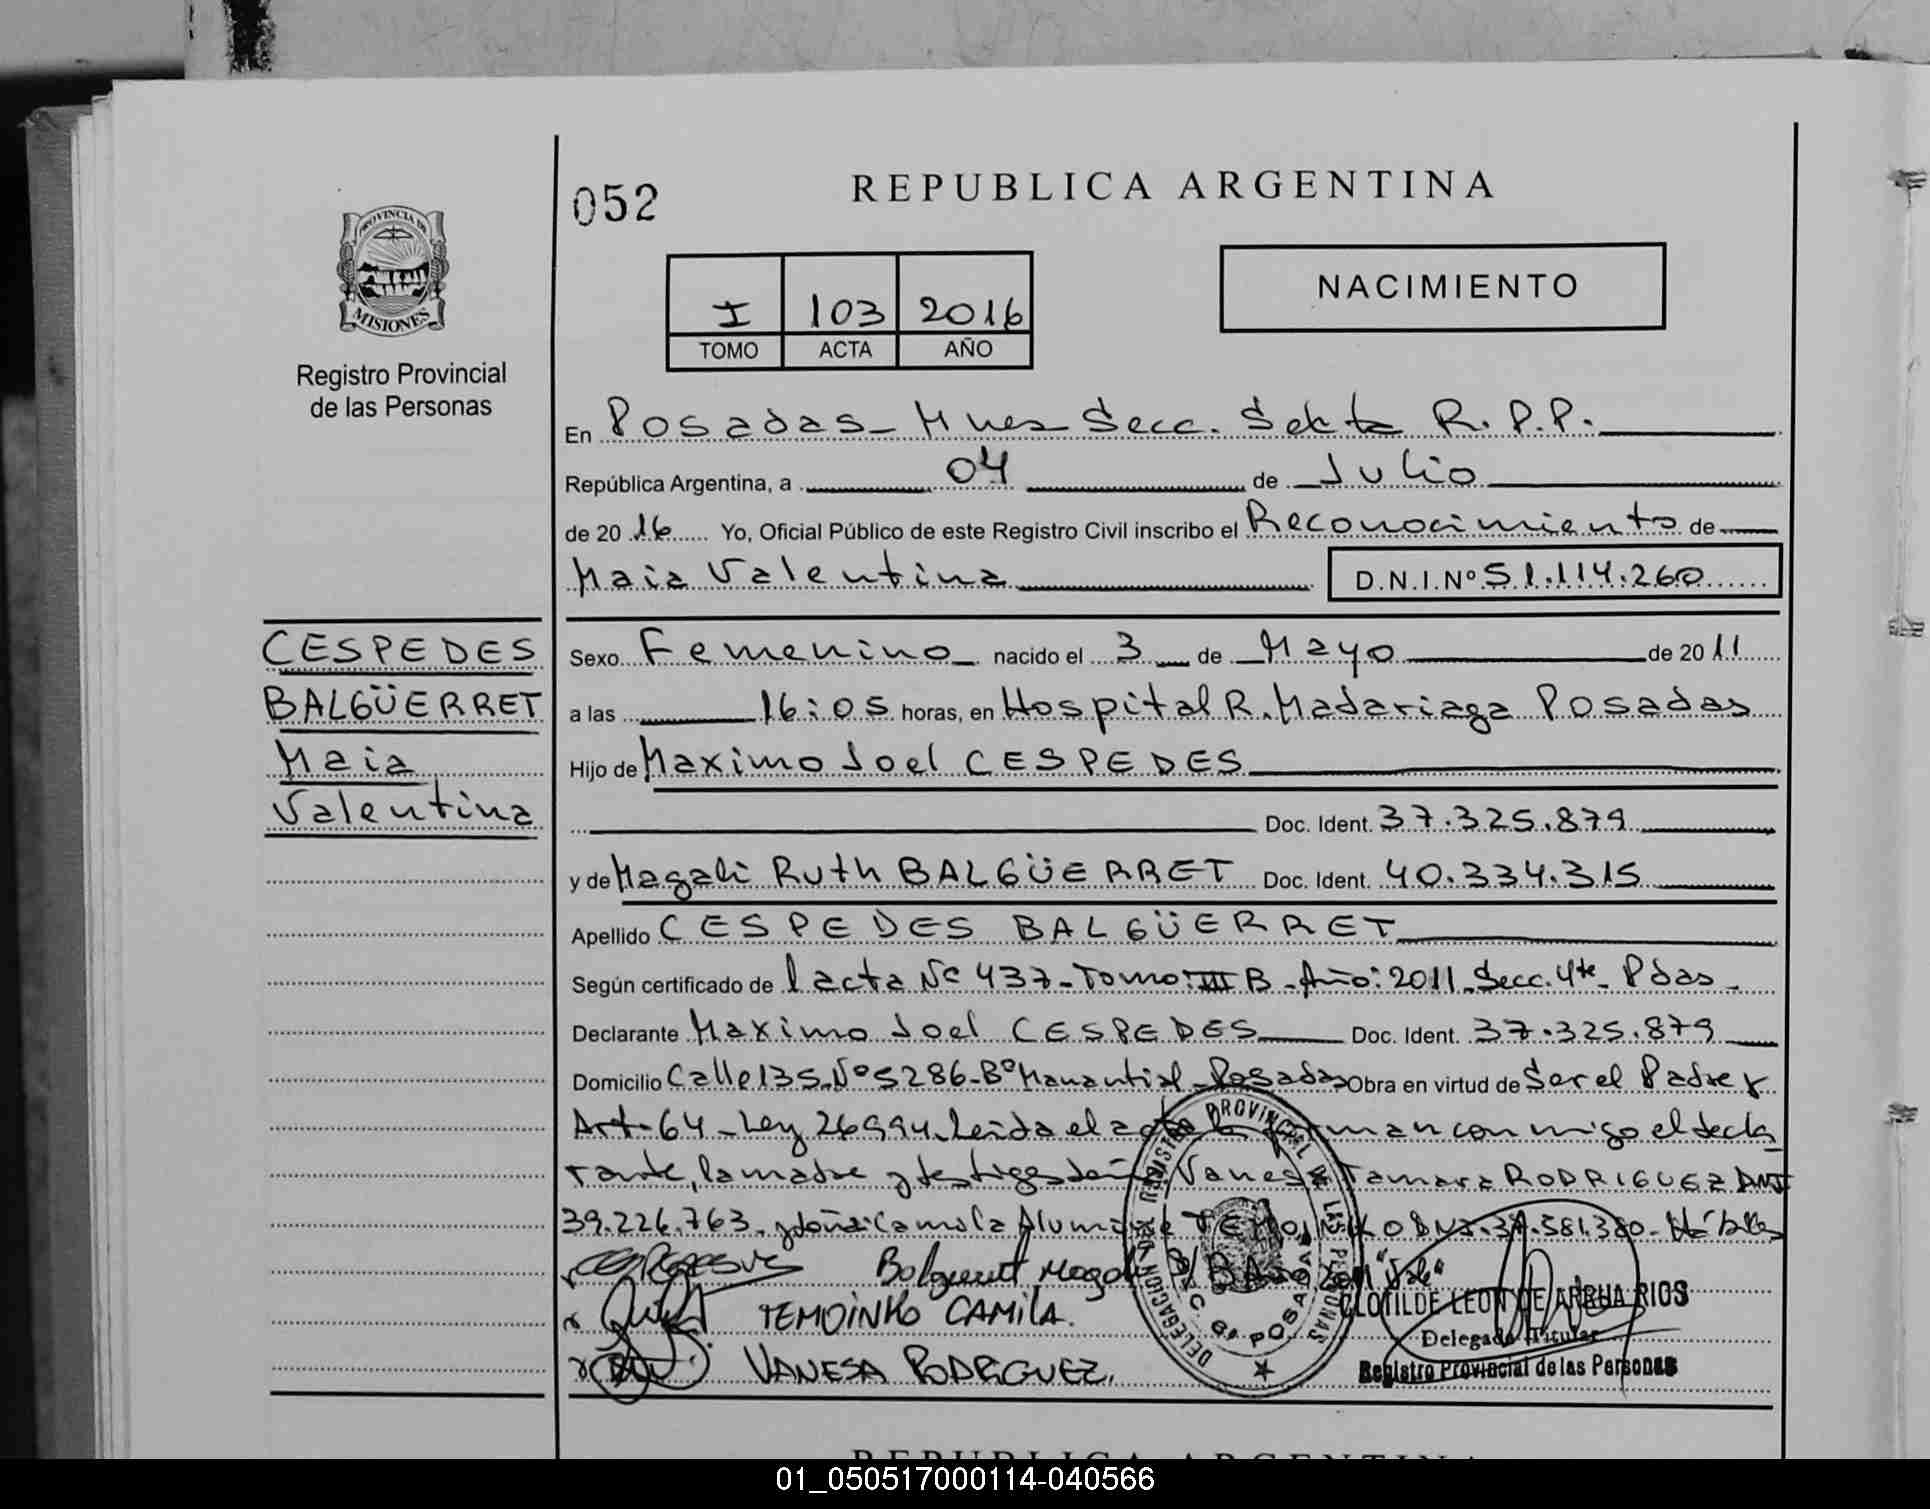 052
REPUBLICA ARGENTINA
PROVINCIA DE
MISIONES
Registro Provincial
de las Personas
I 103 2016
TOMO ACTA AÑO
NACIMIENTO
En Posadas - Mnes Secc. Sexta R.P.P.
República Argentina, a 04 de Julio
de 2016 Yo, Oficial Público de este Registro Civil inscribo el Reconocimiento de
Maia Valentina D.N.I.Nº 51.114.260
CESPEDES
BALGÜERRET
Maia
Valentina
Sexo Femenino nacido el 3 de Mayo de 2011
a las 16:05 horas, en Hospital R. Madariaga Posadas
Hijo de Maximo Joel CESPEDES
Doc. Ident. 37.325.879
y de Magali Ruth BALGÜERRET Doc. Ident. 40.334.315
Apellido CESPEDES BALGÜERRET
Según certificado de acta Nº 437 - Tomo: III B - Año: 2011 - Secc. 4ta - Pdas -
Declarante Maximo Joel CESPEDES Doc. Ident. 37.325.879
Domicilio Calle 135 - Nº 5286 - Bº Manantial - Posadas Obra en virtud de Ser el Padre y
Art. 64 - Ley 26994. Leida el acta la firman conmigo el decla
rante, la madre y testigos doña Vanesa Tamara RODRIGUEZ DNI
39.226.763 - y doña Camila TEMOINKO DNI. 581.380 - Hábiles
Balguerret Magali B Año 2011 "Vale"
TEMOINKO CAMILA.
VANESA RODRGUEZ.
DELEGACION DEL REGISTRO PROVINCIAL DE LAS PERSONAS
SECC. 6ª POSADAS
CLOTILDE LEON DE ARRUA RIOS
Delegado Titular
Registro Provincial de las Personas
REPUBLICA ARGENTINA
01_050517000114-040566